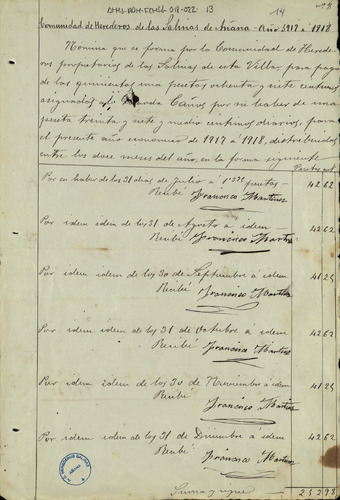 13
14
Comunidad de Herederos de las Salinas de Añana - Año 1917 á 1918
Nomina que se forma por la Comunidad de Herede-
ros propietarios de las Salinas de esta Villa, para pago
de las quinientas una pesetas ochenta y siete centimos
asignadas al Guarda Canos por su haber de una
peseta treinta y siete y medio centimos diarios, para
el presente año economico de 1917 á 1918, distribuidas
entre los doce meses del año, en la forma siguiente
Por su haber de los 31 dias de Julio á 1'375 pesetas - 42 62
Recibí Francisco Martinez
Por idem idem de los 31 de Agosto á idem 42 62
Recibí Francisco Martinez
Por idem idem de los 30 de Septiembre á idem 41 25
Recibí Francisco Martinez
Por idem idem de los 31 de Octubre á idem 42 62
Recibí Francisco Martinez
Por idem idem de los 30 de Noviembre á idem 41 25
Recibí Francisco Martinez
Por idem idem de los 31 de Diciembre á idem 42 62
Recibí Francisco Martinez
Suma y sigue 252 98